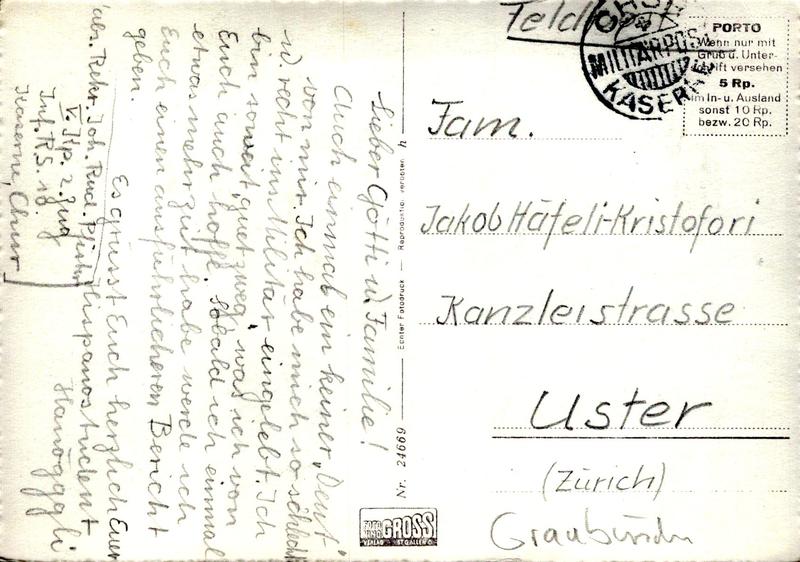 Feldpost
CHUR
MILITÄRPOST
KASERNE
PORTO
Wenn nur mit
Gruß u. Unter-
schrift versehen
5 Rp.
im In- u. Ausland
sonst 10 Rp.
bezw. 20 Rp.
Fam.
Jakob Häfeli-Kristofori
Kanzleistrasse
Uster
(Zürich)
Graubünden
Echter Fotodruck — Reproduktion verboten h
Nr. 24669
FOTO
UND
GROSS
VERLAG ST. GALLEN
Lieber Götti u. Familie!
Auch einmal ein keiner „Deut"
von mir. Ich habe mich so schlecht
u. recht ins Militär eingelebt. Ich
bin soweit „guet zweg", was ich von
Euch auch hoffe. Sobald ich einmal
etwas mehr Zeit habe werde ich
Euch einen ausführlicheren Bericht
geben.
Es grüsst Euch herzlich Euer
Hispanostudent
Hansöggli
abs. Rekr. Joh. Rud. Pfister
V. Kp. 2. Zug
Inf. R.S. 12.
Kaserne, Chur